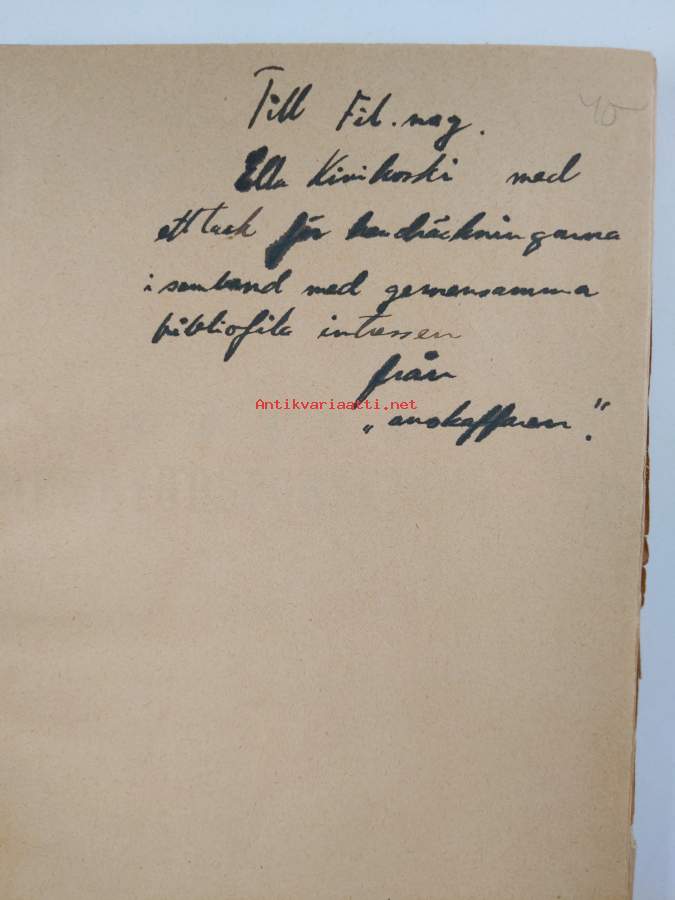 Till Fil. mag.
Ella Kivikoski med
ett tack för handräckningarna
i samband med gemensamma
bibliofila intressen
från
„anskaffaren."
Antikvariaatti.net
40